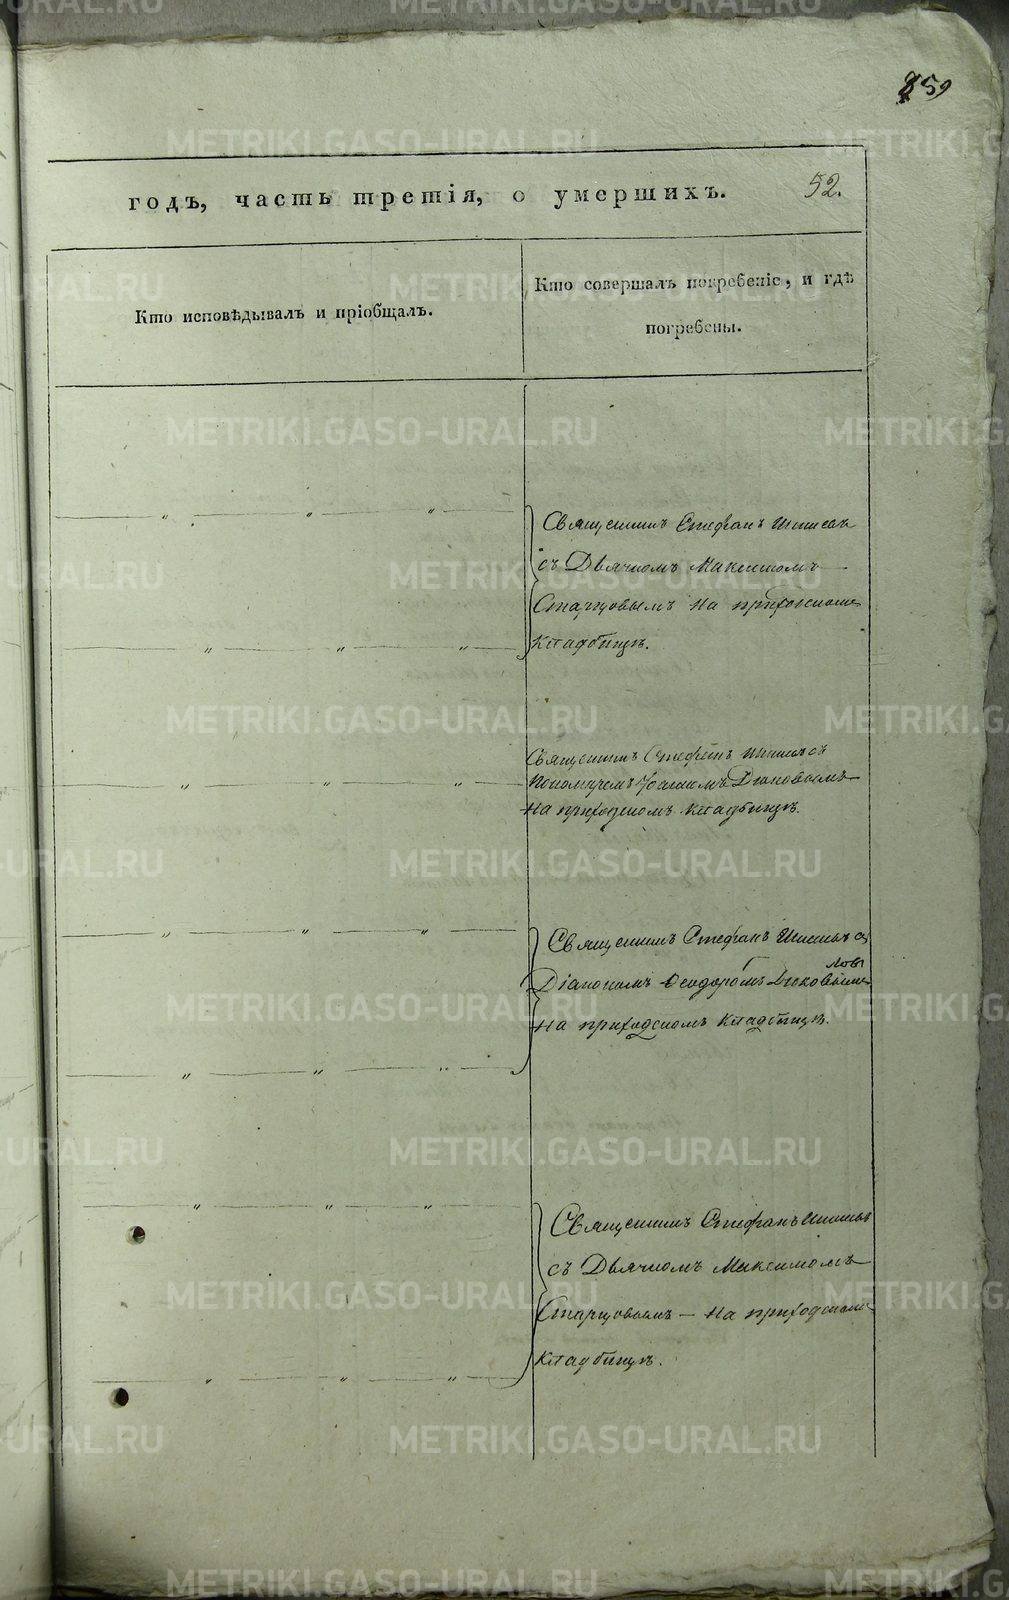 59
годъ, часть третія, о умершихъ. 52.
Кто исповѣдывалъ и пріобщалъ.
Кто совершалъ погребеніе, и гдѣ
погребены.
Священникъ Стефанъ
съ Дьячкомъ Максимомъ
Старцовымъ на приходскомъ
кладбищѣ.
Священникъ Стефанъ съ
Пономаремъ Іоанномъ
на приходскомъ кладбищѣ.
Священникъ Стефанъ
Діакономъ Ѳеодоромъ
на приходскомъ кладбищѣ.
Священникъ Стефанъ
съ Дьячкомъ Максимомъ
Старцовымъ — на приходскомъ
кладбищѣ.
METRIKI.GASO-URAL.RU